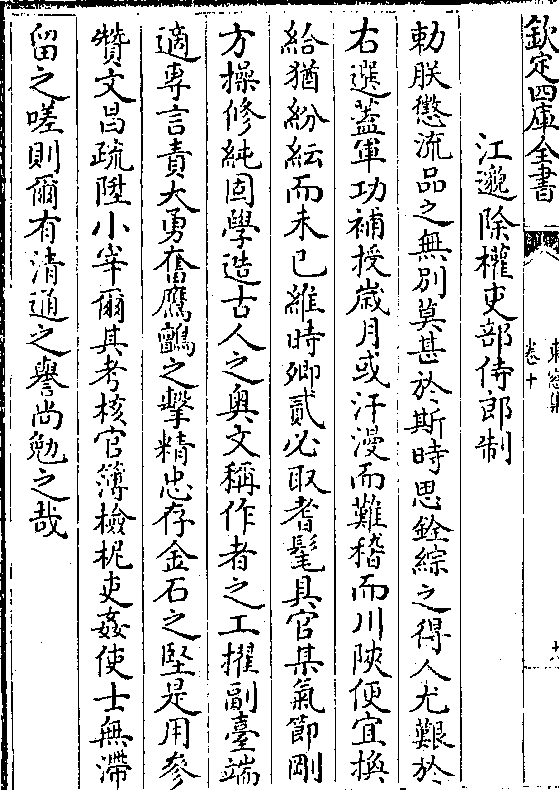 欽定四庫全書
卷十
江邈除權吏部侍郎制
勅朕懲流品之無別莫甚於斯時思銓綜之得人尤艱於
右選蓋軍功補授歲月或汗漫而難稽而川陝便宜換
給猶紛紜而未已維時卿貳必取耆髦具官某氣節剛
方操修純固學造古人之奧文稱作者之工擢副臺端
適專言責大勇奮鷹鸇之擊精忠存金石之堅是用參
贊文昌疏陞小宰爾其考核官簿檢柅吏姦使士無滯
留之嗟則爾有清通之譽尚勉之哉